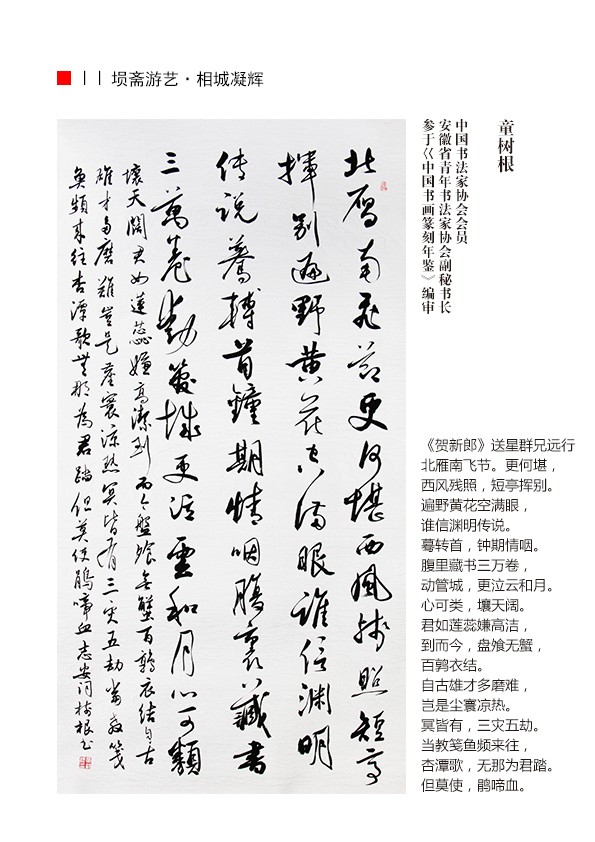 埙斋游艺·相城凝辉
童树根
中国书法家协会会员
安徽省青年书法家协会副秘书长
参于《中国书画篆刻年鉴》编审
北雁南飞节更何堪西风残照短亭
挥别遍野黄花空满眼谁信渊明
传说蓦转首钟期情咽腹里藏书
三万卷动管城更泣云和月心可类
壤天阔君如莲蕊嫌高洁到而今盘飧无蟹百鹑衣结自古
雄才多磨难岂是尘寰凉热冥皆有三灾五劫当教笺
鱼频来往杏潭歌无那为君踏但莫使鹃啼血志安词树根书
《贺新郎》送星群兄远行
北雁南飞节。更何堪，
西风残照，短亭挥别。
遍野黄花空满眼，
谁信渊明传说。
蓦转首，钟期情咽。
腹里藏书三万卷，
动管城，更泣云和月。
心可类，壤天阔。
君如莲蕊嫌高洁，
到而今，盘飧无蟹，
百鹑衣结。
自古雄才多磨难，
岂是尘寰凉热。
冥皆有，三灾五劫。
当教笺鱼频来往，
杏潭歌，无那为君踏。
但莫使，鹃啼血。